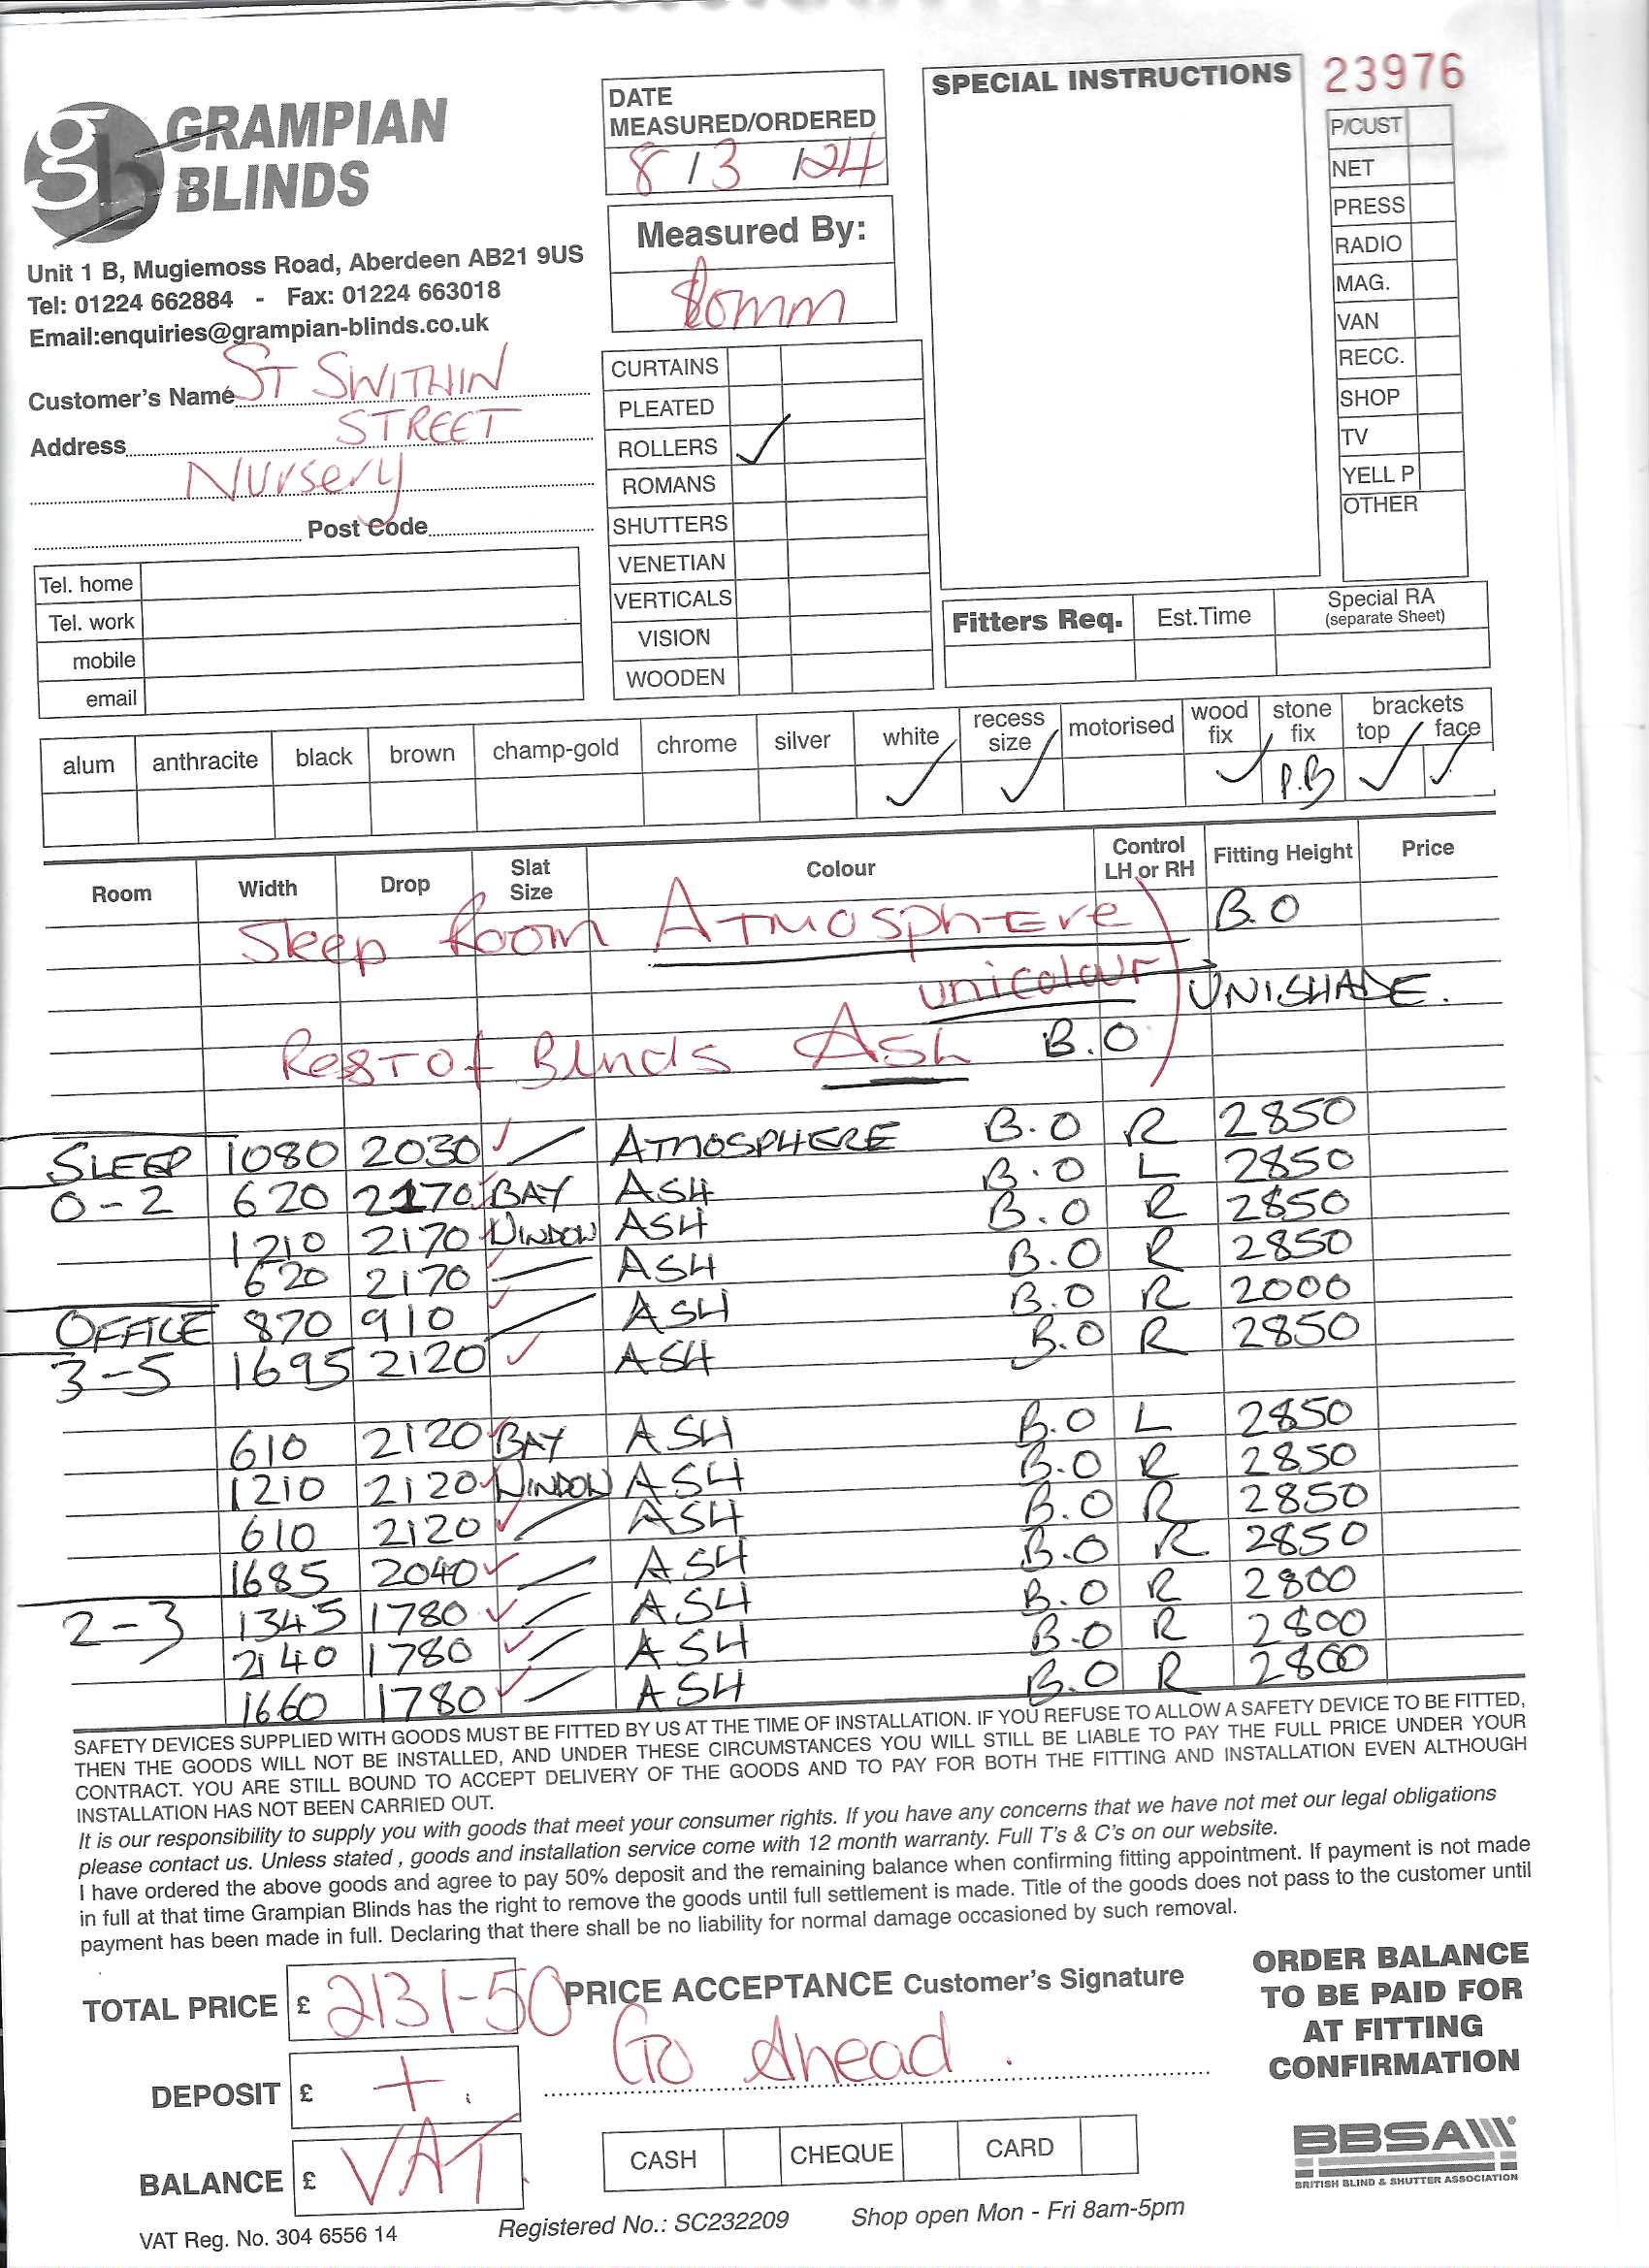 23976
GRAMPIAN
BLINDS
Unit 1 B, Mugiemoss Road, Aberdeen AB21 9US
Tel: 01224 662884 - Fax: 01224 663018
Email:enquiries@grampian-blinds.co.uk
Customer's Name ST SWITHIN
Address STREET
Nursery
Post Code
Tel. home
Tel. work
mobile
email
DATE
MEASURED/ORDERED
8/3/24
Measured By:
CURTAINS
PLEATED
ROLLERS ✓
ROMANS
SHUTTERS
VENETIAN
VERTICALS
VISION
WOODEN
SPECIAL INSTRUCTIONS
P/CUST
NET
PRESS
RADIO
MAG.
VAN
RECC.
SHOP
TV
YELL P
OTHER
Fitters Req. Est.Time Special RA
(separate Sheet)
alum anthracite black brown champ-gold chrome silver white recess size motorised wood fix stone fix brackets top face
✓ ✓ ✓ P.B ✓ ✓
Room Width Drop Slat Size Colour Control LH or RH Fitting Height Price
Sleep Room Atmosphere B.O
unicolour UNISHADE.
Rest of Blinds Ash B.O
SLEEP 1080 2030 ✓ ATMOSPHERE B.O R 2850
0-2 620 2170 BAY ASH B.O L 2850
1210 2170 WINDOW ASH B.O R 2850
620 2170 ASH B.O R 2850
OFFICE 870 910 ✓ ASH B.O R 2000
3-5 1695 2120 ✓ ASH B.O R 2850
610 2120 BAY ASH B.O L 2850
1210 2120 ✓ WINDOW ASH B.O R 2850
610 2120 ✓ ASH B.O R 2850
1685 2040 ✓ ASH B.O R 2850
2-3 1345 1780 ✓ ASH B.O R 2800
2140 1780 ✓ ASH B.O R 2800
1660 1780 ✓ ASH B.O R 2800
SAFETY DEVICES SUPPLIED WITH GOODS MUST BE FITTED BY US AT THE TIME OF INSTALLATION. IF YOU REFUSE TO ALLOW A SAFETY DEVICE TO BE FITTED,
THEN THE GOODS WILL NOT BE INSTALLED, AND UNDER THESE CIRCUMSTANCES YOU WILL STILL BE LIABLE TO PAY THE FULL PRICE UNDER YOUR
CONTRACT. YOU ARE STILL BOUND TO ACCEPT DELIVERY OF THE GOODS AND TO PAY FOR BOTH THE FITTING AND INSTALLATION EVEN ALTHOUGH
INSTALLATION HAS NOT BEEN CARRIED OUT.
It is our responsibility to supply you with goods that meet your consumer rights. If you have any concerns that we have not met our legal obligations
please contact us. Unless stated , goods and installation service come with 12 month warranty. Full T's & C's on our website.
I have ordered the above goods and agree to pay 50% deposit and the remaining balance when confirming fitting appointment. If payment is not made
in full at that time Grampian Blinds has the right to remove the goods until full settlement is made. Title of the goods does not pass to the customer until
payment has been made in full. Declaring that there shall be no liability for normal damage occasioned by such removal.
TOTAL PRICE £ 2131-50
DEPOSIT £ +
BALANCE £ VAT
PRICE ACCEPTANCE Customer's Signature
Go Ahead
CASH CHEQUE CARD
ORDER BALANCE
TO BE PAID FOR
AT FITTING
CONFIRMATION
BBSA
BRITISH BLIND & SHUTTER ASSOCIATION
VAT Reg. No. 304 6556 14 Registered No.: SC232209 Shop open Mon - Fri 8am-5pm